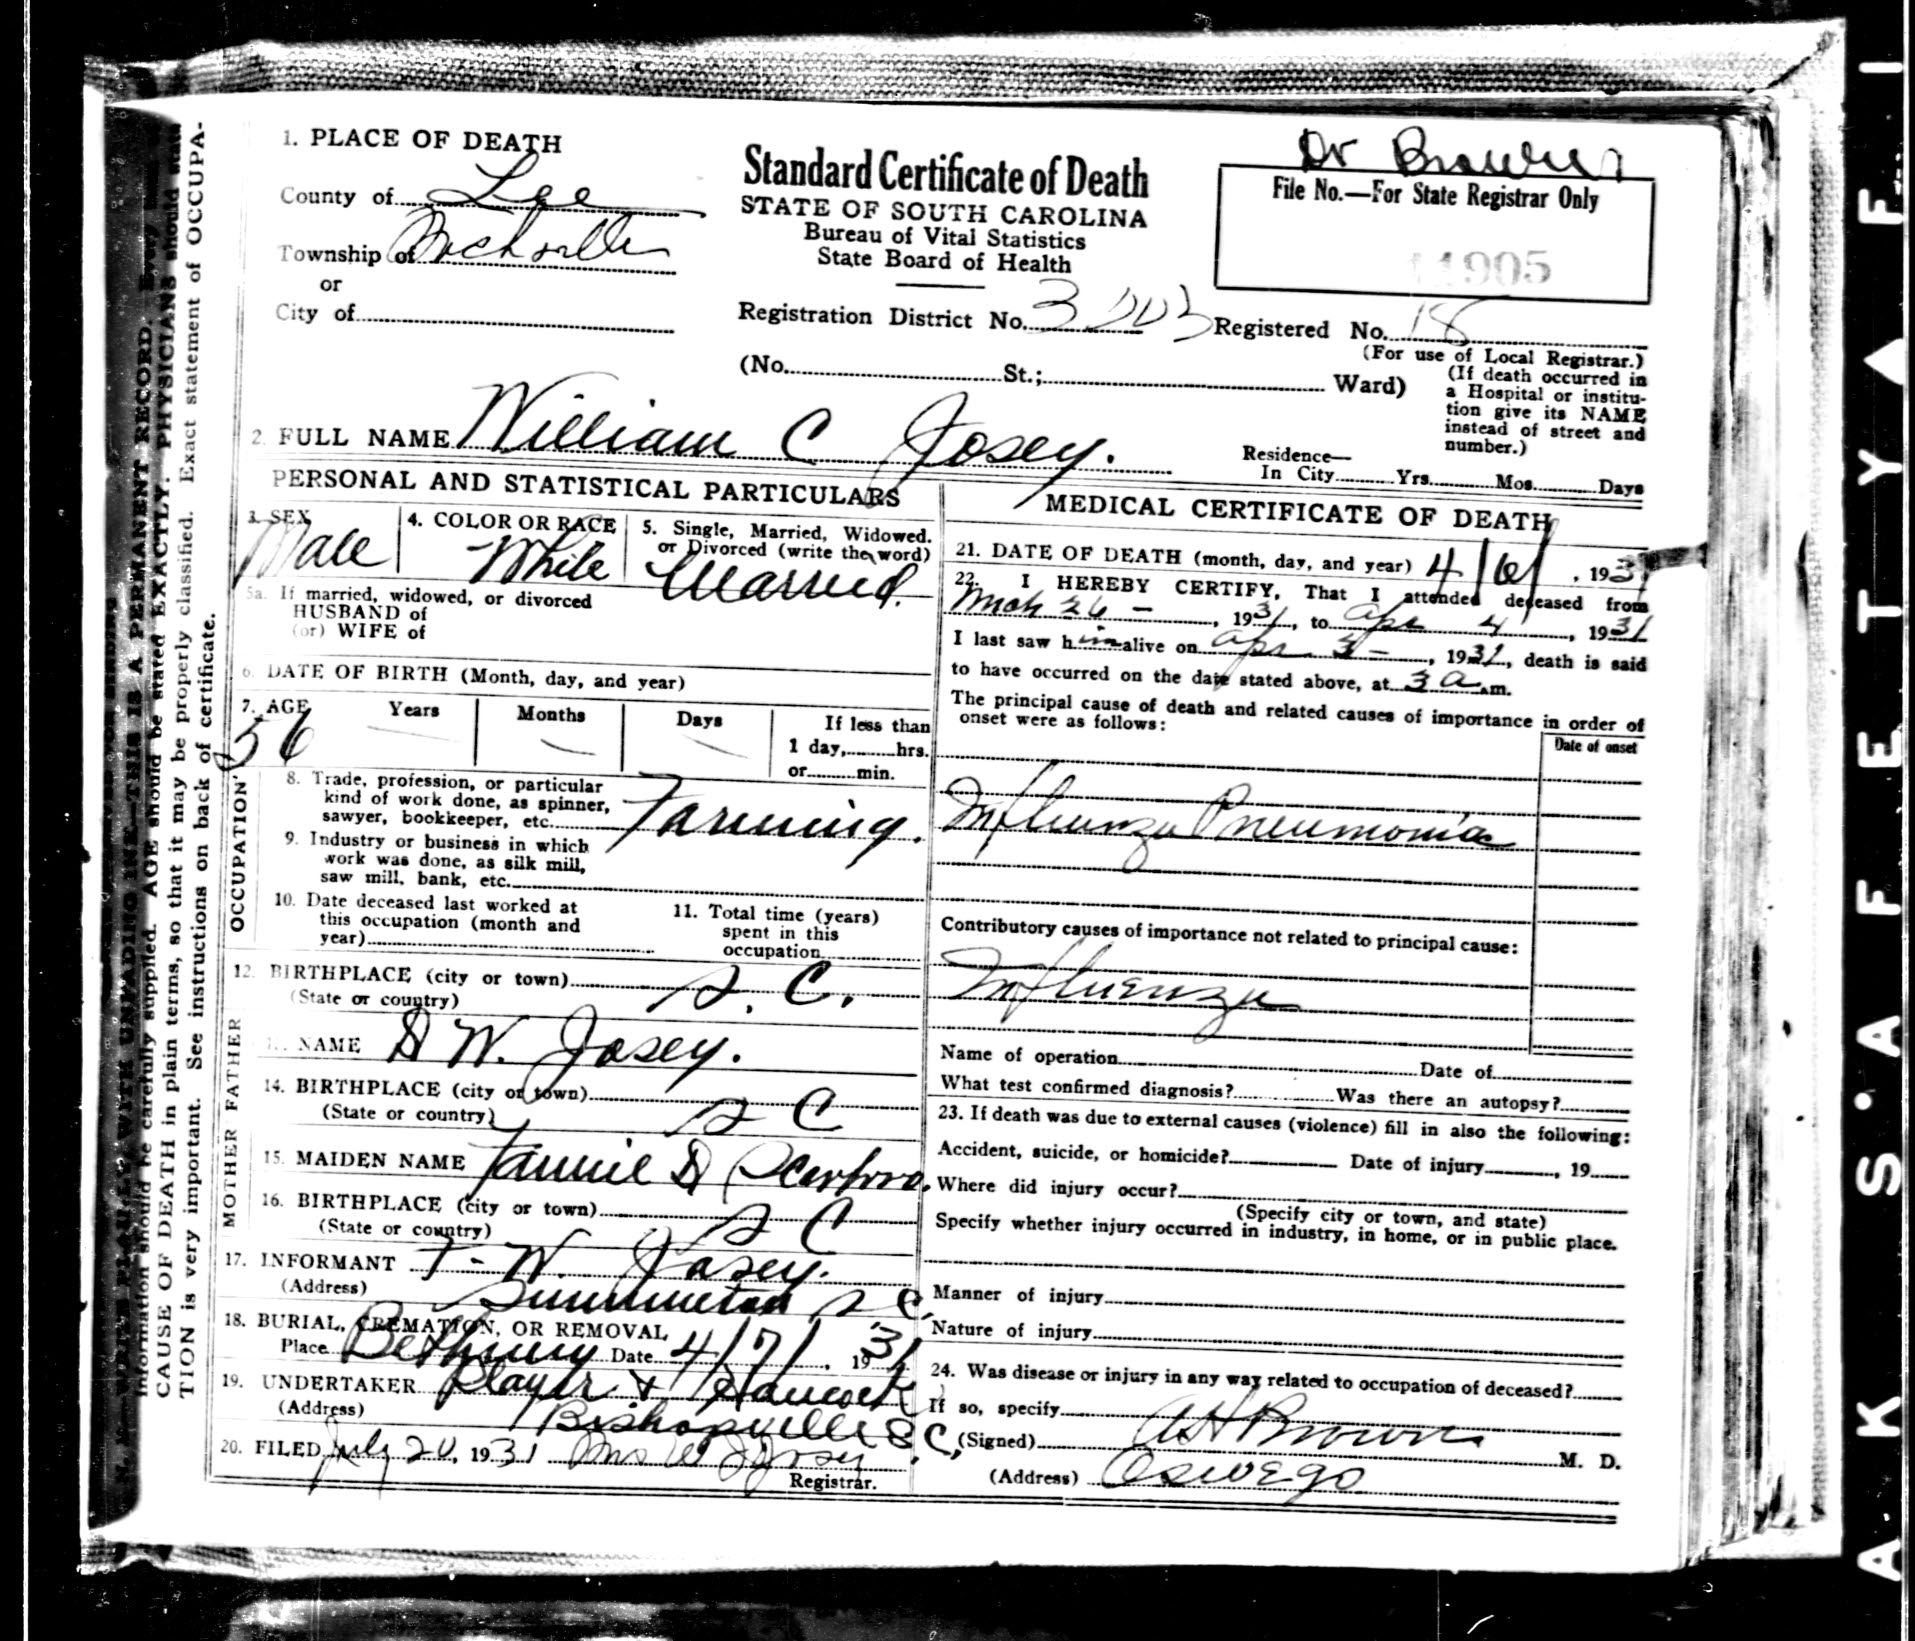 Dr Brown
1. PLACE OF DEATH
County of Lee
Township of
or
City of
Standard Certificate of Death
STATE OF SOUTH CAROLINA
Bureau of Vital Statistics
State Board of Health
File No.—For State Registrar Only
11905
Registration District No. 3003 Registered No. 18
(For use of Local Registrar.)
(No. St.; Ward)
(If death occurred in
a Hospital or institu-
tion give its NAME
instead of street and
number.)
2. FULL NAME William C Josey.
Residence—
In City Yrs. Mos. Days
PERSONAL AND STATISTICAL PARTICULARS
3. SEX
Male
4. COLOR OR RACE
White
5. Single, Married, Widowed.
or Divorced (write the word)
Married.
5a. If married, widowed, or divorced
HUSBAND of
(or) WIFE of
6. DATE OF BIRTH (Month, day, and year)
7. AGE Years Months Days If less than
56
1 day, hrs.
or min.
OCCUPATION
8. Trade, profession, or particular
kind of work done, as spinner,
sawyer, bookkeeper, etc. Farming.
9. Industry or business in which
work was done, as silk mill,
saw mill, bank, etc.
10. Date deceased last worked at
this occupation (month and
year)
11. Total time (years)
spent in this
occupation
12. BIRTHPLACE (city or town) S. C.
(State or country)
FATHER
NAME D W. Josey.
14. BIRTHPLACE (city or town) S C
(State or country)
MOTHER
15. MAIDEN NAME Fannie D Scarboro.
16. BIRTHPLACE (city or town) S C
(State or country)
17. INFORMANT T-W. Josey.
(Address) Summerton S C.
18. BURIAL, CREMATION, OR REMOVAL
Place Bethany Date 4/7/, 1931
19. UNDERTAKER Player & Hancock
(Address) Bishopville S C,
20. FILED July 20, 1931 Mrs W J Josey
Registrar.
MEDICAL CERTIFICATE OF DEATH
21. DATE OF DEATH (month, day, and year) 4/6/, 1931
22. I HEREBY CERTIFY, That I attended deceased from
Mch 26 -, 1931, to Apr 4, 1931
I last saw him alive on Apr 3 -, 1931, death is said
to have occurred on the date stated above, at 3 a.m.
The principal cause of death and related causes of importance in order of
onset were as follows:
Date of onset
Influenza Pneumonia
Contributory causes of importance not related to principal cause:
Influenza
Name of operation Date of
What test confirmed diagnosis? Was there an autopsy?
23. If death was due to external causes (violence) fill in also the following:
Accident, suicide, or homicide? Date of injury, 19
Where did injury occur?
(Specify city or town, and state)
Specify whether injury occurred in industry, in home, or in public place.
Manner of injury
Nature of injury
24. Was disease or injury in any way related to occupation of deceased?
If so, specify
(Signed) A H Brown M. D.
(Address) Oswego
N. B.—WRITE PLAINLY, WITH UNFADING INK—THIS IS A PERMANENT RECORD.
information should be carefully supplied. AGE should be stated EXACTLY. PHYSICIANS should state
CAUSE OF DEATH in plain terms, so that it may be properly classified. Exact statement of OCCUPA-
TION is very important. See instructions on back of certificate.
SAFETY